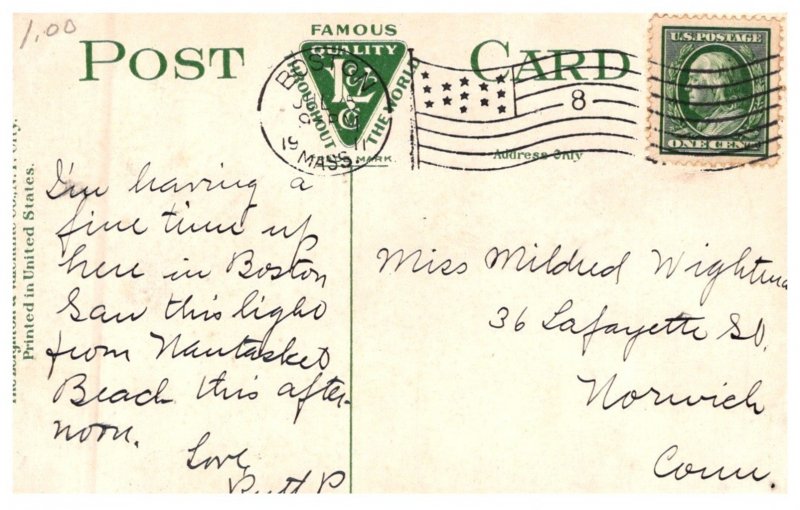 1.00
FAMOUS
POST CARD
QUALITY
THROUGHOUT THE WORLD
MARK.
BOSTON
19 11
MASS.
8
U.S. POSTAGE
ONE CENT
Address Only
Printed in United States.
I'm having a
fine time up
here in Boston
Saw this light
from Nantasket
Beach this after-
noon.
Love
Miss Mildred
36 Lafayette St.
Norwich
Conn.